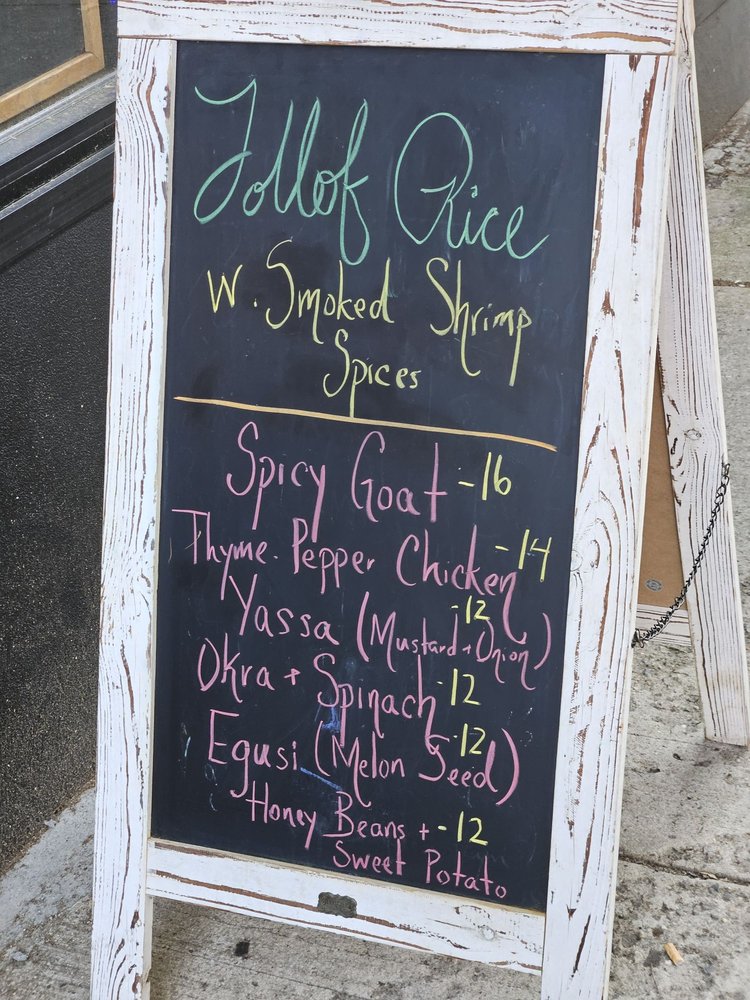 Jollof Rice
w. Smoked Shrimp
Spices
Spicy Goat -16
Thyme. Pepper Chicken -14
Yassa (Mustard + Onion) -12
Okra + Spinach -12
Egusi (Melon Seed) -12
Honey Beans + -12
Sweet Potato